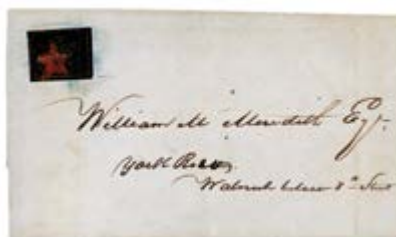 William M Meredith Esq.
York Row
Walnut below 8th Street